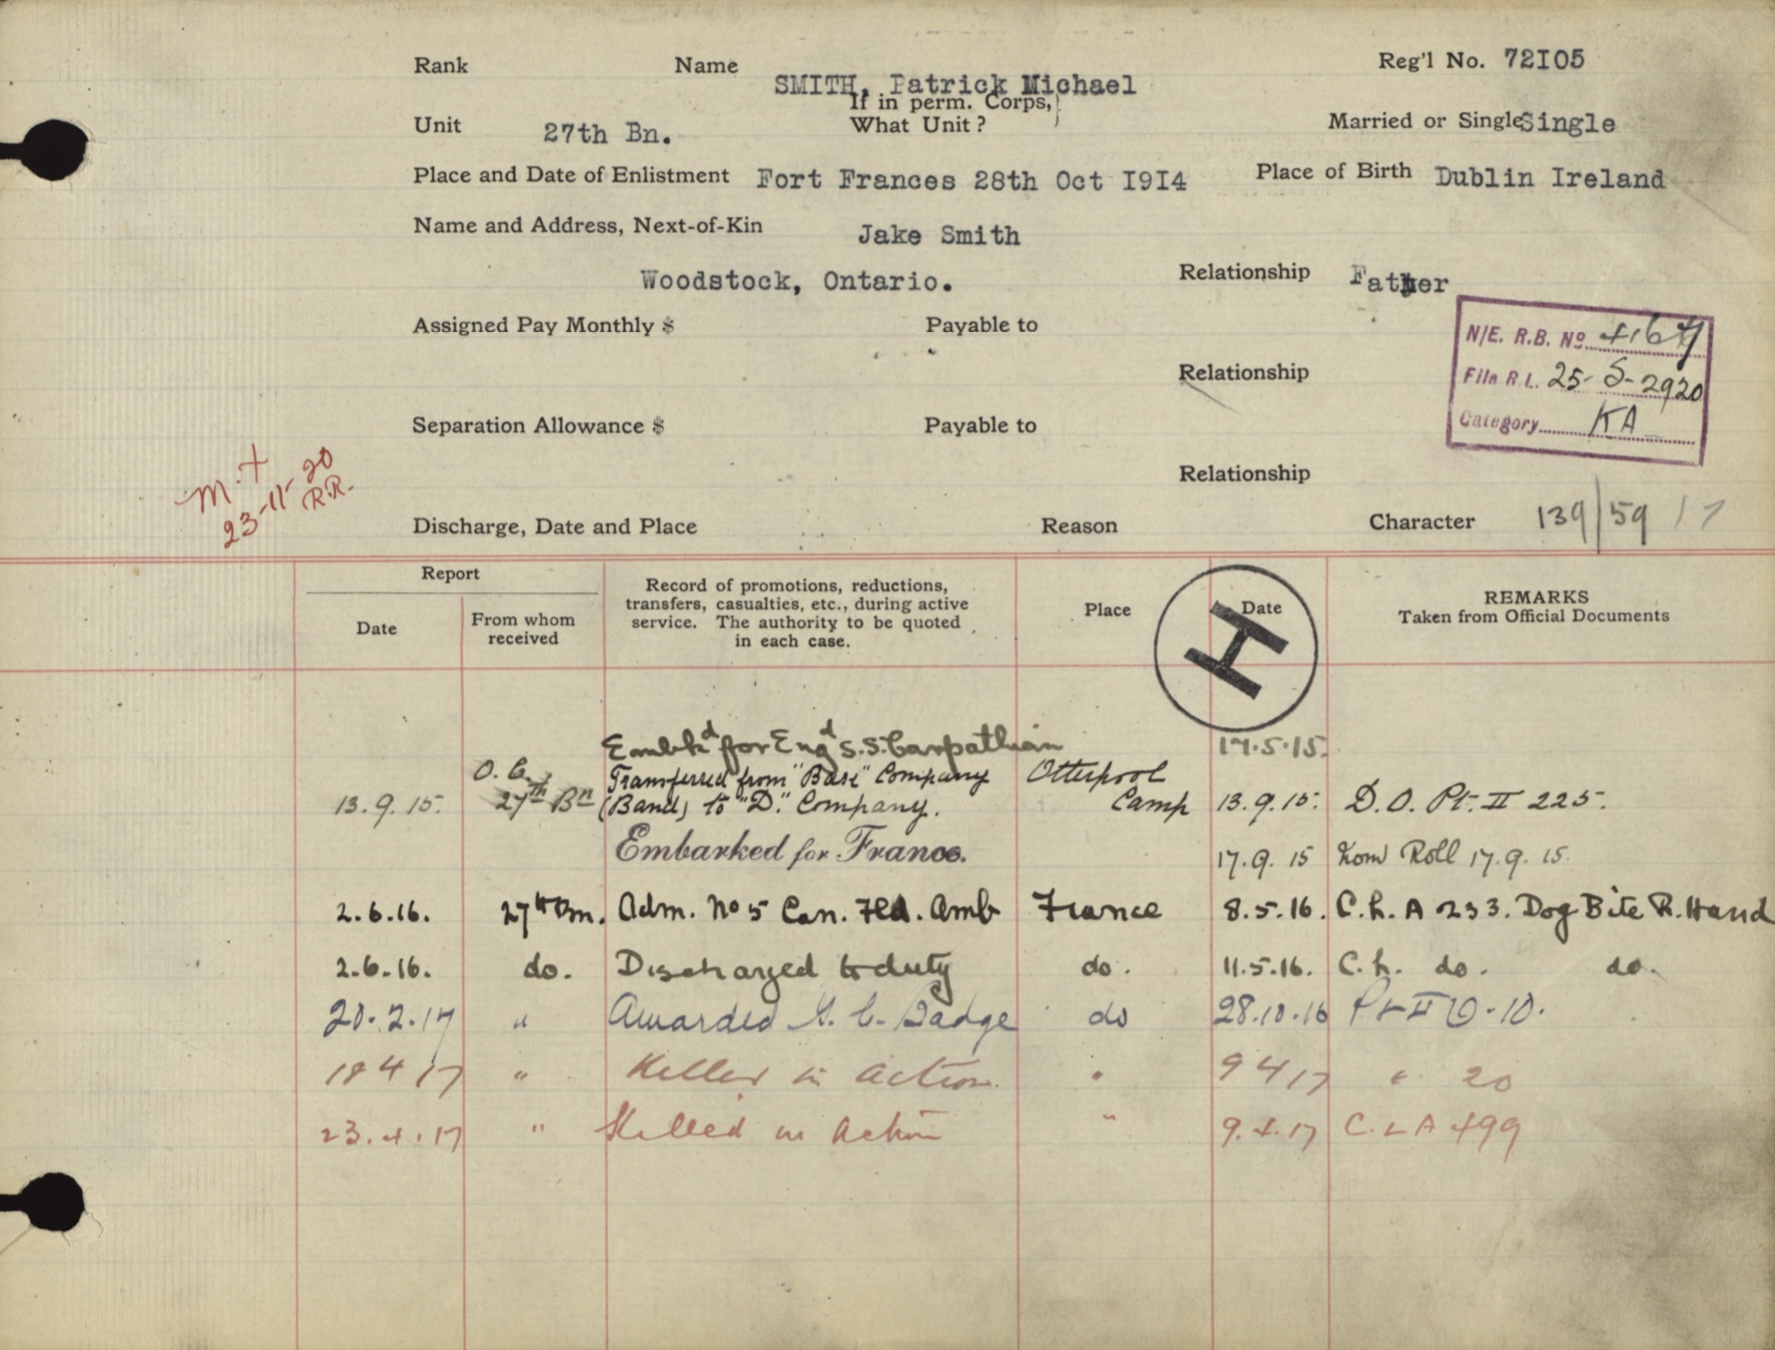 Rank Name SMITH, Patrick Michael Reg'l No. 72I05
If in perm. Corps,
Unit 27th Bn. What Unit? Married or Single Single
Place and Date of Enlistment Fort Frances 28th Oct I9I4 Place of Birth Dublin Ireland
Name and Address, Next-of-Kin Jake Smith
Woodstock, Ontario. Relationship Father
Assigned Pay Monthly $ Payable to
N/E. R.B. No 4167
Relationship
File R.L. 25-S-2920
Category KA
Separation Allowance $ Payable to
Relationship
M.X
23-11-20
R.R.
Discharge, Date and Place Reason Character 139/59 / 7
Report
Date
From whom
received
Record of promotions, reductions,
transfers, casualties, etc., during active
service. The authority to be quoted
in each case.
Place
Date
H
REMARKS
Taken from Official Documents
Embkd for Engd S.S. Carpathian 17.5.15.
O.C. Transferred from "Base" Company Otterpool
13.9.15. 27th Bn (Band) to "D." Company. Camp 13.9.15. D.O. Pt. II 225.
Embarked for France. 17.9.15 Nom Roll 17.9.15.
2.6.16. 27th Bn. Adm. No 5 Can. Fld. Amb France 8.5.16. C.L. A 233. Dog Bite R. Hand
2.6.16. do. Discharged to duty do. 11.5.16. C.L. do. do.
20.2.17 " Awarded G.C. Badge do 28.10.16 Pt II O.10.
18 4 17 " Killed in action. " 9 4 17 " 20
23.4.17 " Killed in Action " 9.4.17 C.L A 499